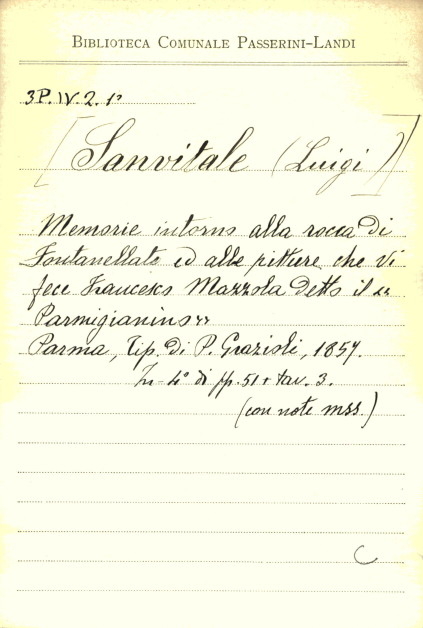 BIBLIOTECA COMUNALE PASSERINI-LANDI
3P.IV.2.1º
[Sanvitale (Luigi)]
Memorie intorno alla rocca di
Fontanellato ed alle pitture che vi
fece Francesco Mazzola detto il «
Parmigianino »
Parma, Tip. di P. Grazioli, 1857.
In-4º di pp. 51 + tav. 3.
(con note mss.)
C